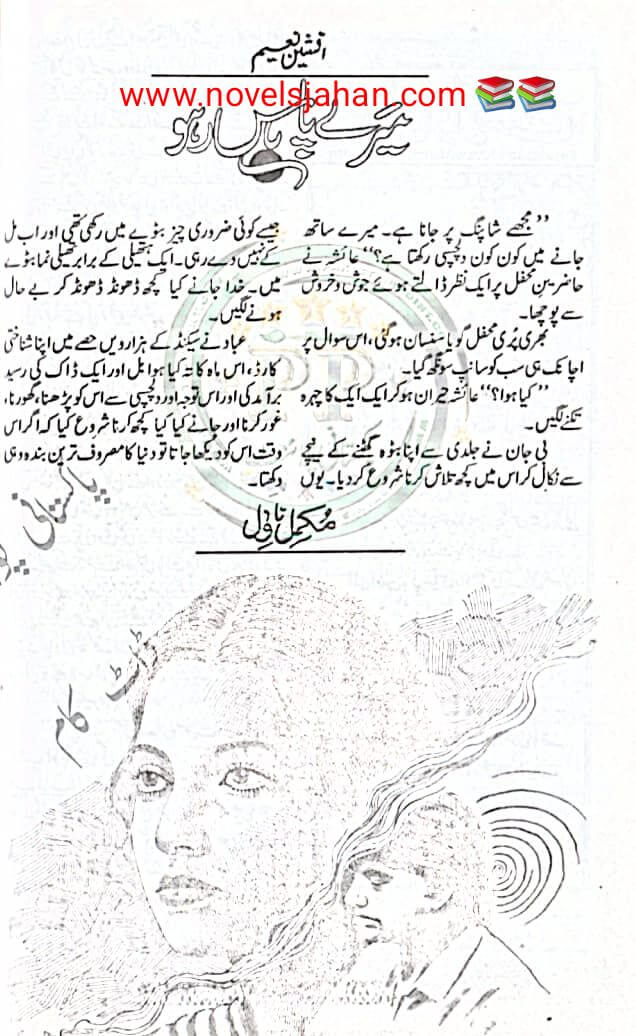 افشین نعیم
www.novelsjahan.com
میرے پاس رہو
”مجھے شاپنگ پر جانا ہے۔ میرے ساتھ
جانے میں کون کون دلچسپی رکھتا ہے؟“ عائشہ نے
حاضرین محفل پر ایک نظر ڈالتے ہوئے جوش و خروش
سے پوچھا۔
بھری پُری محفل گویا سنسان ہو گئی، اس سوال پر
اچانک ہی سب کو سانپ سونگھ گیا۔
”کیا ہوا؟“ عائشہ حیران ہو کر ایک ایک کا چہرہ
تکنے لگیں۔
بی جان نے جلدی سے اپنا بٹوہ گھٹنے کے نیچے
سے نکال کر اس میں کچھ تلاش کرنا شروع کر دیا۔ یوں
جیسے کوئی ضروری چیز بٹوے میں رکھی تھی اور اب مل
کے نہیں دے رہی۔ ایک ہتھیلی کے برابر تھیلی نما بٹوے
میں۔ خدا جانے کیا کچھ ڈھونڈ ڈھونڈ کر بے حال
ہونے لگیں۔
عباد نے سیکنڈ کے ہزارویں حصے میں اپنا شناختی
کارڈ، اس ماہ کا تہ کیا ہوا بل اور ایک ڈاک کی رسید
برآمد کی اور اس توجہ اور دلچسپی سے اس کو پڑھنا، گھورنا،
غور کرنا اور جانے کیا کیا کچھ کرنا شروع کیا کہ اگر اس
وقت اس کو دیکھا جاتا تو دنیا کا مصروف ترین بندہ وہی
دکھتا۔
مکمل ناول
پاکستانی
ڈاٹ کام